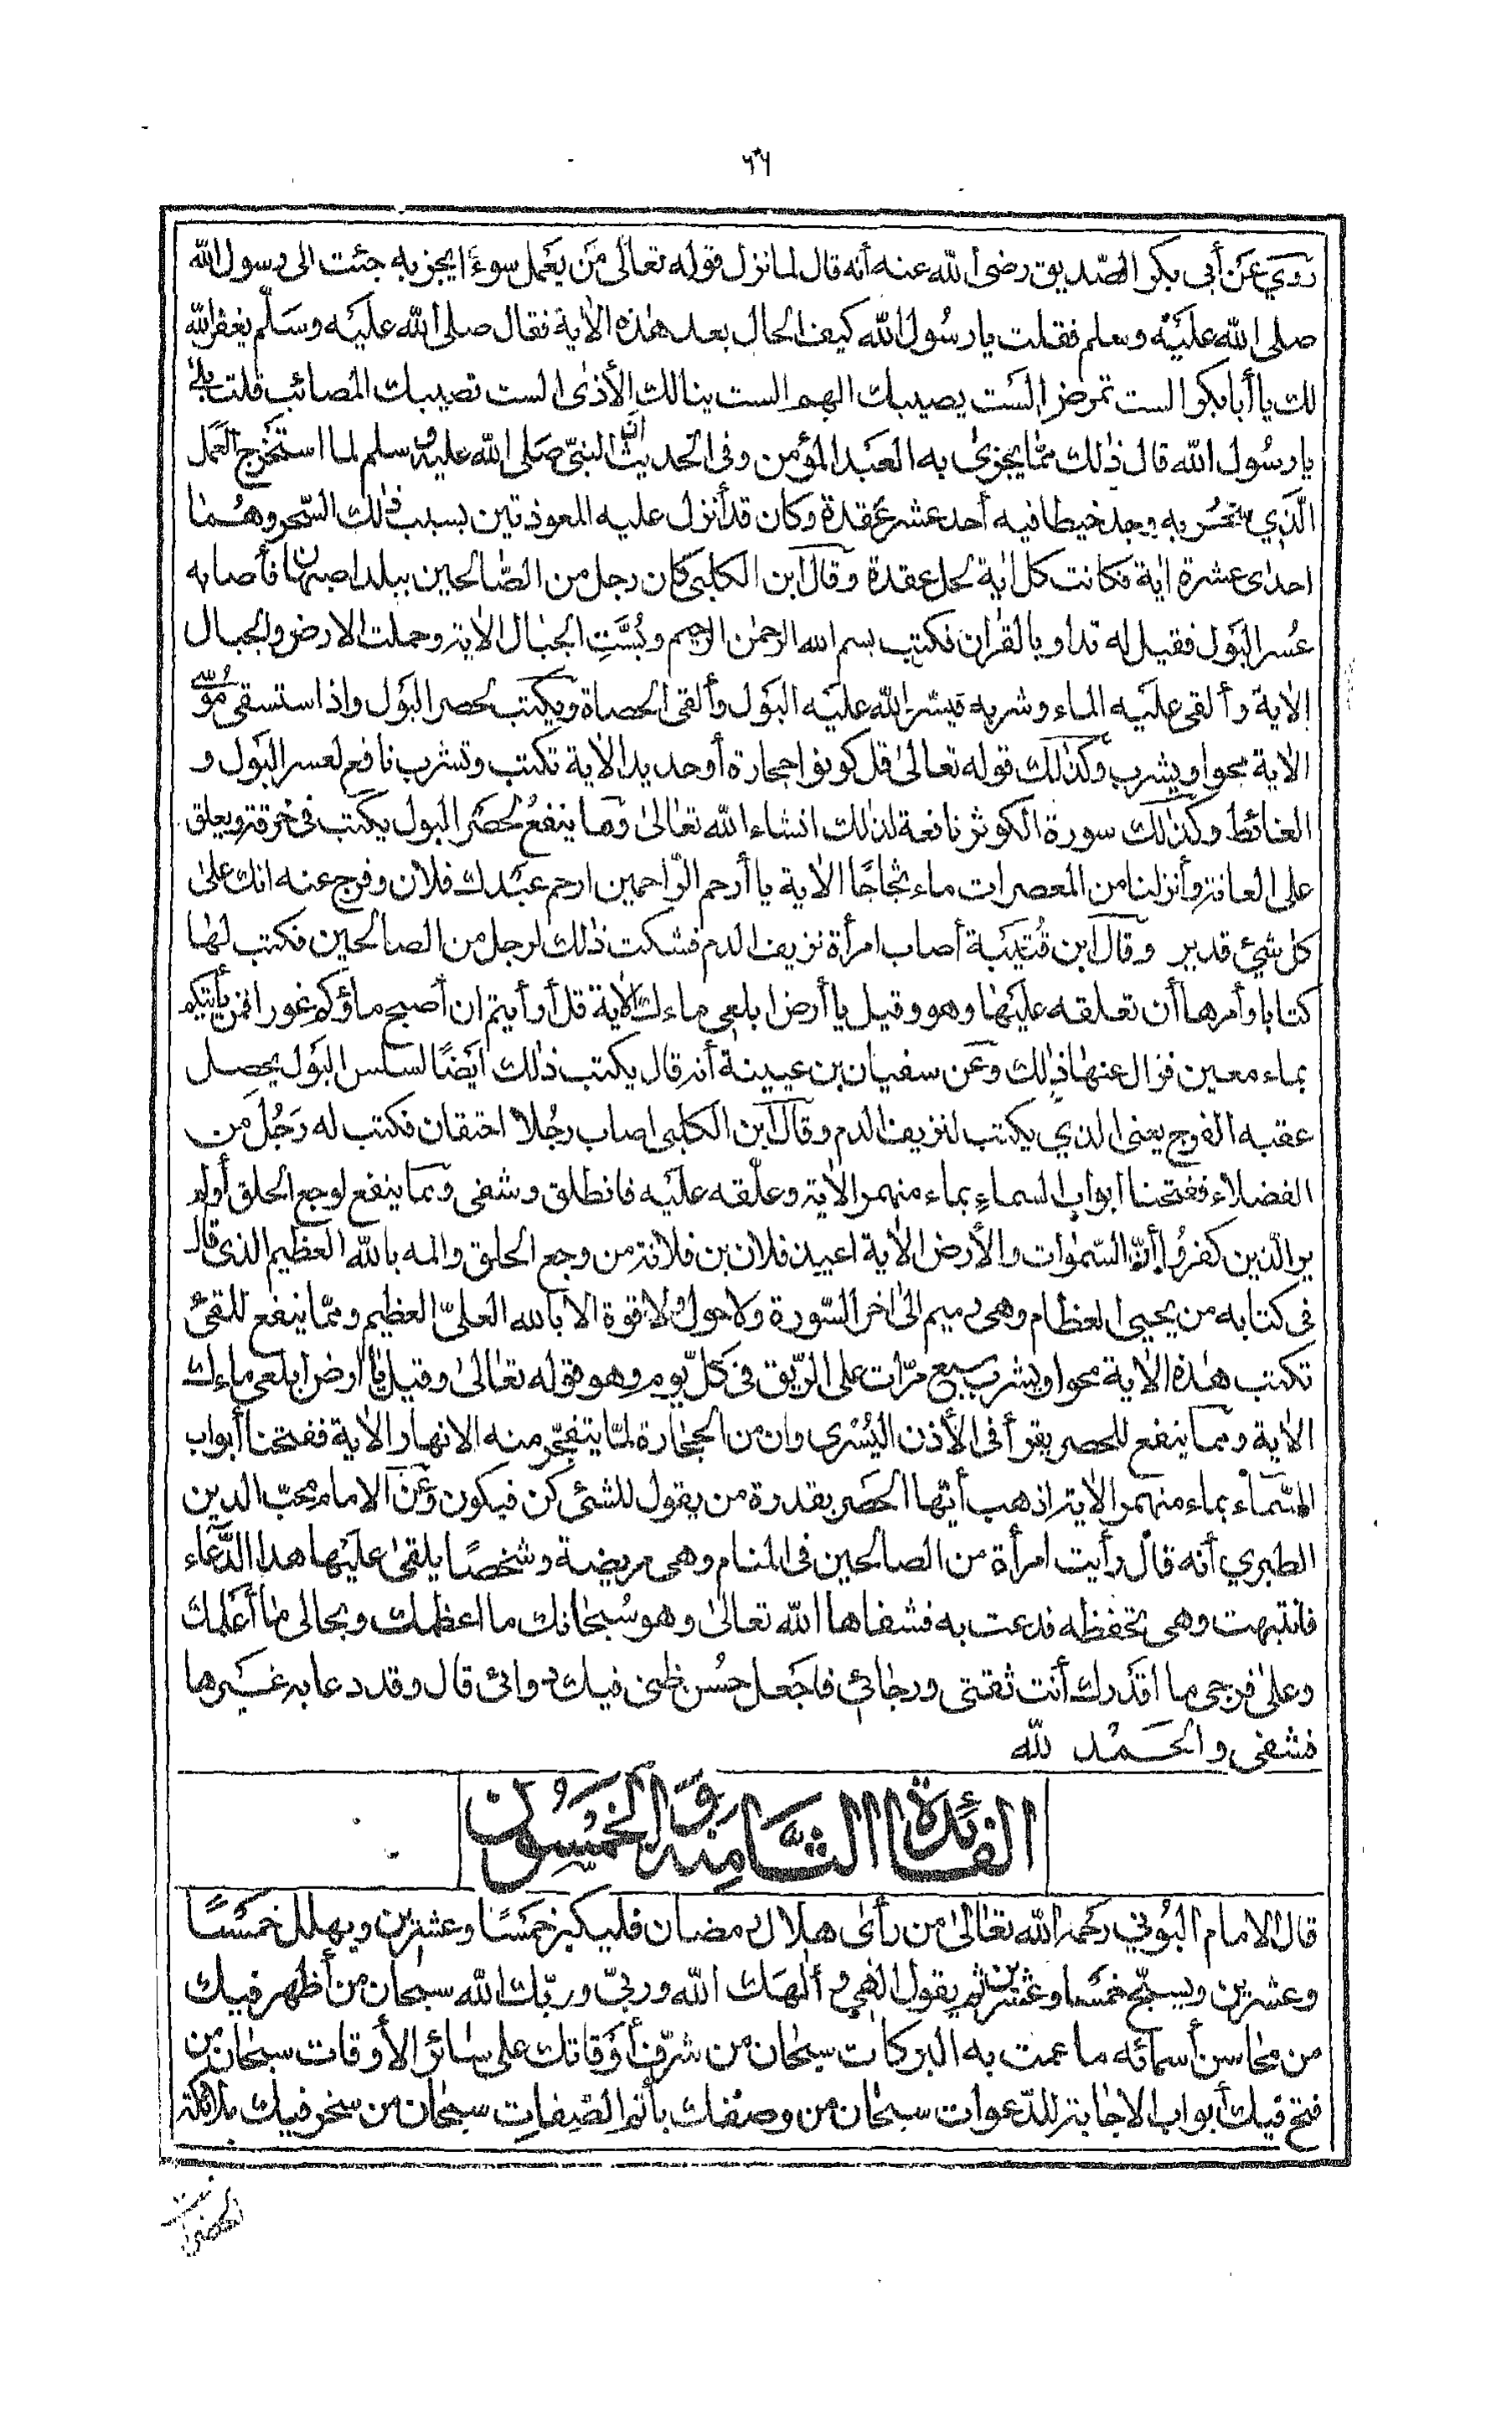 ٦٦
روي عن أبي بكر الصديق رضي الله عنه أنه قال لما نزل قوله تعالى من يعمل سوءًا يجز به جئت الى رسول الله
صلى الله عليه وسلم فقلت يا رسول الله كيف الحال بعد هذه الاية فقال صلى الله عليه وسلم يغفر الله
لك يا أبا بكر الست تمرض الست يصيبك الهم الست ينالك الأذى الست تصيبك المصائب قلت بلى
يا رسول الله قال ذلك مما يجزى به العبد المؤمن وفي الحديث ان النبي صلى الله عليه وسلم لما استخرج العمل
الذي سحر به وجد خيطا فيه أحد عشر عقدة وكان قد أنزل عليه المعوذتين بسبب ذلك السحر وهما
احدى عشرة اية فكانت كل اية لحل عقدة وقال ابن الكلبي كان رجل من الصالحين ببلد اصبهان فأصابه
عسر البول فقيل له تداو بالقران فكتب بسم الله الرحمن الرحيم وبُسَّتِ الجبال الاية وحملت الارض والجبال
الاية وألقى عليه الماء وشربه فيسر الله عليه البول وألقى الحصاة ويكتب لحصر البول واذ استسقى موسى
الاية محوا ويشرب وكذلك قوله تعالى قل كونوا حجارة أو حديدا الاية تكتب وتشرب نافع لعسر البول و
الغائط وكذلك سورة الكوثر نافعة لذلك انشاء الله تعالى ومما ينفع لحصر البول يكتب في خرقة ويعلق
على العانة وأنزلنا من المعصرات ماء ثجاجًا الاية يا أرحم الراحمين ارحم عبدك فلان وفرج عنه انك على
كل شيئ قدير وقال ابن قُتَيبَة أصاب امرأة نزيف الدم فشكت ذلك لرجل من الصالحين فكتب لها
كتابا وأمرها أن تعلقه عليها وهو وقيل يا أرض ابلعي ماءك الاية قل أرأيتم ان أصبح ماؤكم غورا فمن يأتيكم
بماء معين فزال عنها ذلك وعن سفيان بن عيينة أنه قال يكتب ذلك ايضًا لسلس البول يحصل
عقبه الفرج يعني الذي يكتب لنزيف الدم وقال ابن الكلبي اصاب رجلا احتقان فكتب له رَجُل من
الفضلاء ففتحنا ابواب السماء بماء منهمر الاية وعلّقه عليه فانطلق وشفي ومما ينفع لوجع الحلق أولم
ير الذين كفروا أنّ السموات والأرض الاية اعيذ فلان بن فلانة من وجع الحلق والمه بالله العظيم الذي قال
في كتابه من يحيي العظام وهي رميم الى اخر السورة ولا حول ولا قوة الا بالله العليّ العظيم ومما ينفع للقئ
تكتب هذه الاية محوا ويشرب سبع مرّات على الريق في كل يوم وهو قوله تعالى وقيل يا أرض ابلعي ماءك
الاية ومما ينفع للحصر يقرأ في الأذن اليُسْرى وان من الحجارة لما يتفجر منه الانهار الاية ففتحنا أبواب
السّماء بماء منهمر الاية اذهب أيّها الحصر بقدرة من يقول للشئ كن فيكون وعن الامام محبّ الدين
الطبري أنه قال رأيت امرأة من الصالحين في المنام وهي مريضة وشخصًا يلقى عليها هذا الدّعاء
فانتبهت وهي تحفظه فدعت به فشفاها الله تعالى وهو سُبحانك ما اعظمك وبحالي ما أعلمك
وعلى فرجي ما اقدرك أنت ثقتي ورجائي فاجعل حسن ظني فيك دوائى قال وقد دعا به غيرها
فشفي والحمد لله
الفائدة الثامنة والخمسون
قال الامام البُوني رحمه الله تعالى من رأى هلال رمضان فليكبر خمسًا وعشرين ويهلل خمسًا
وعشرين ويسبّح خمسا وعشرين ثم يقول الهي والهك الله وربيّ وربّك الله سبحان من أظهر فيك
من محاسن أسمائه ما عمت به البركات سبحان من شرّف أوقاتك على سائر الأوقات سبحان من
فتح فيك أبواب الاجابة للدّعوات سبحان من وصفك بأتم الصّفات سبحان من سخر فيك ملائكة